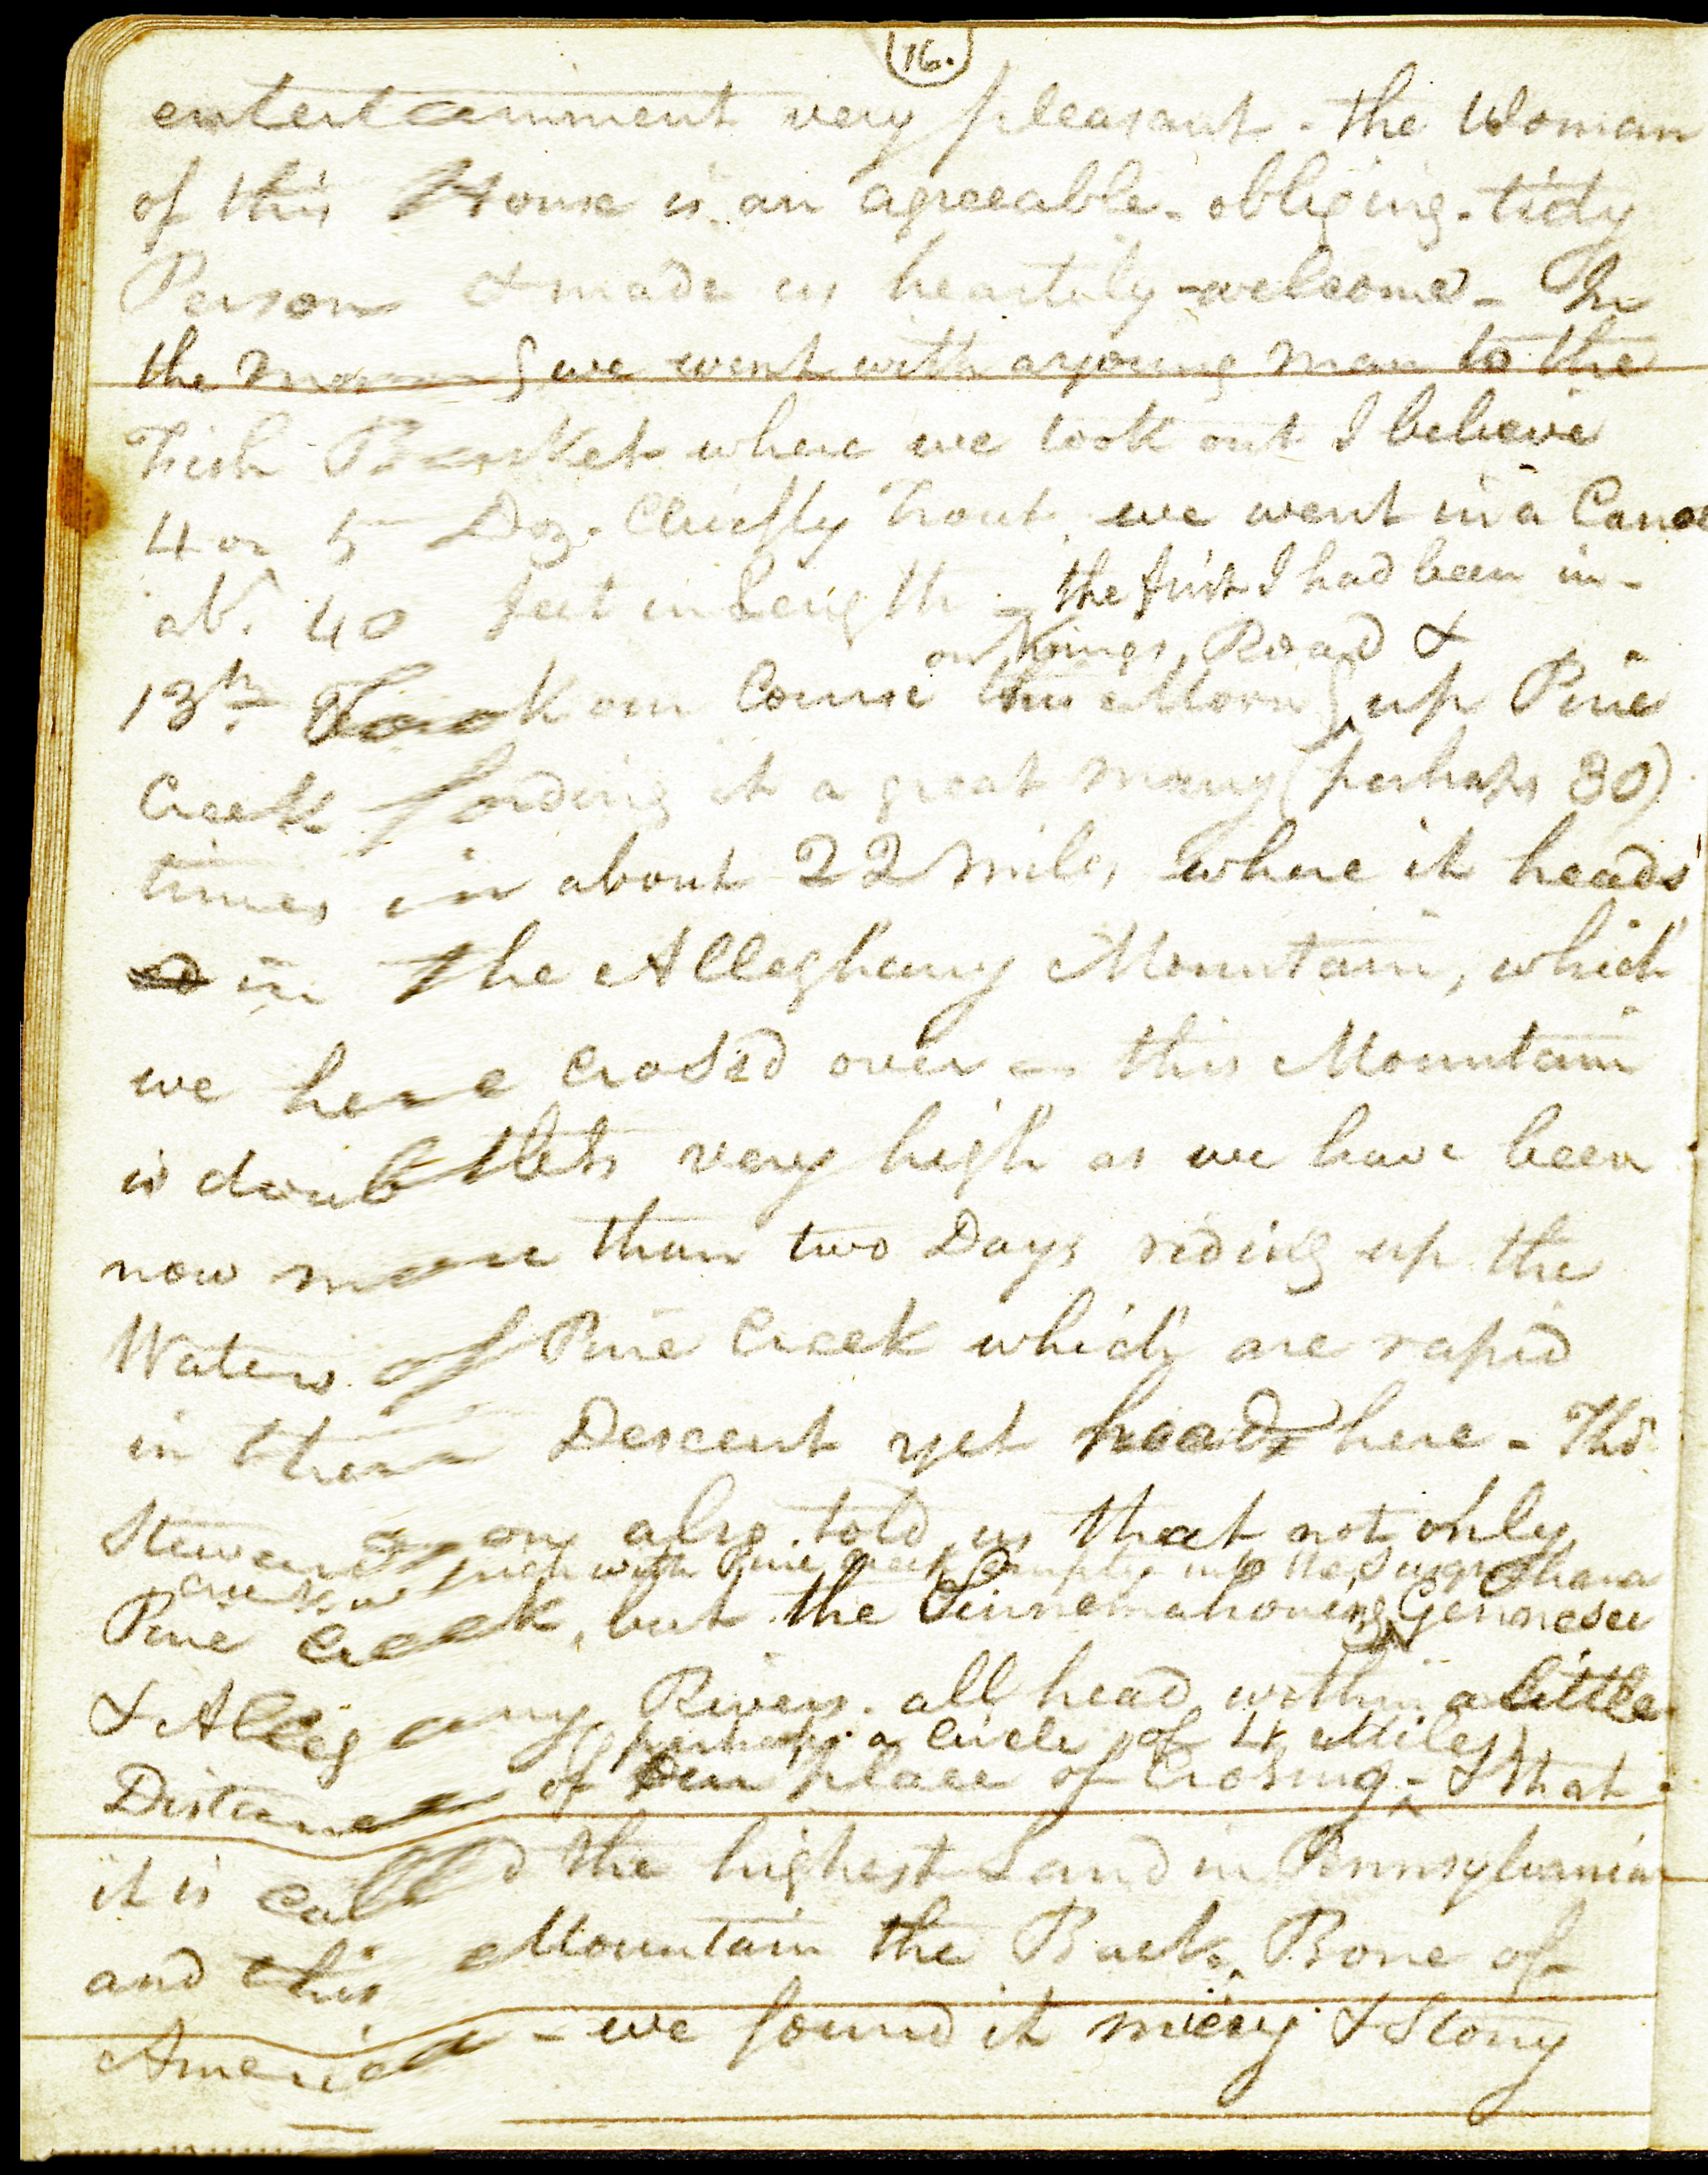 16.
entertainment very pleasant - the Woman
of this House is an agreeable - obliging - tidy
Person & made us heartily welcome - In
the morng we went with a young man to the
Fish Basket where we took out I believe
4 or 5 Doz. Chiefly Trout, we went in a Canoe
abt. 40 feet in Length - the first I had been in -
on Kings Road &
13th Took our Course this Morng up Pine
Creek fording it a great many (perhaps 30)
times in about 22 miles where it heads
in the Alleghany Mountain, which
we here crossed over - this Mountain
is doubtless very high as we have been
now more than two Days riding up the
Waters of Pine Creek which are rapid
in their Descent yet head here - Tho
Stewardson also told us that not only
creek which with Pine Creek empty into the Susquehana
Pine Creek, but the Sinnemahoning Gennesee
& Allegany Rivers all head within a little
(perhaps a Circle of 4 Miles)
Distance of our place of Crossing - & that
it is called the highest Land in Pennsylvania
and this Mountain the Back Bone of
America - we found it miery & Stony